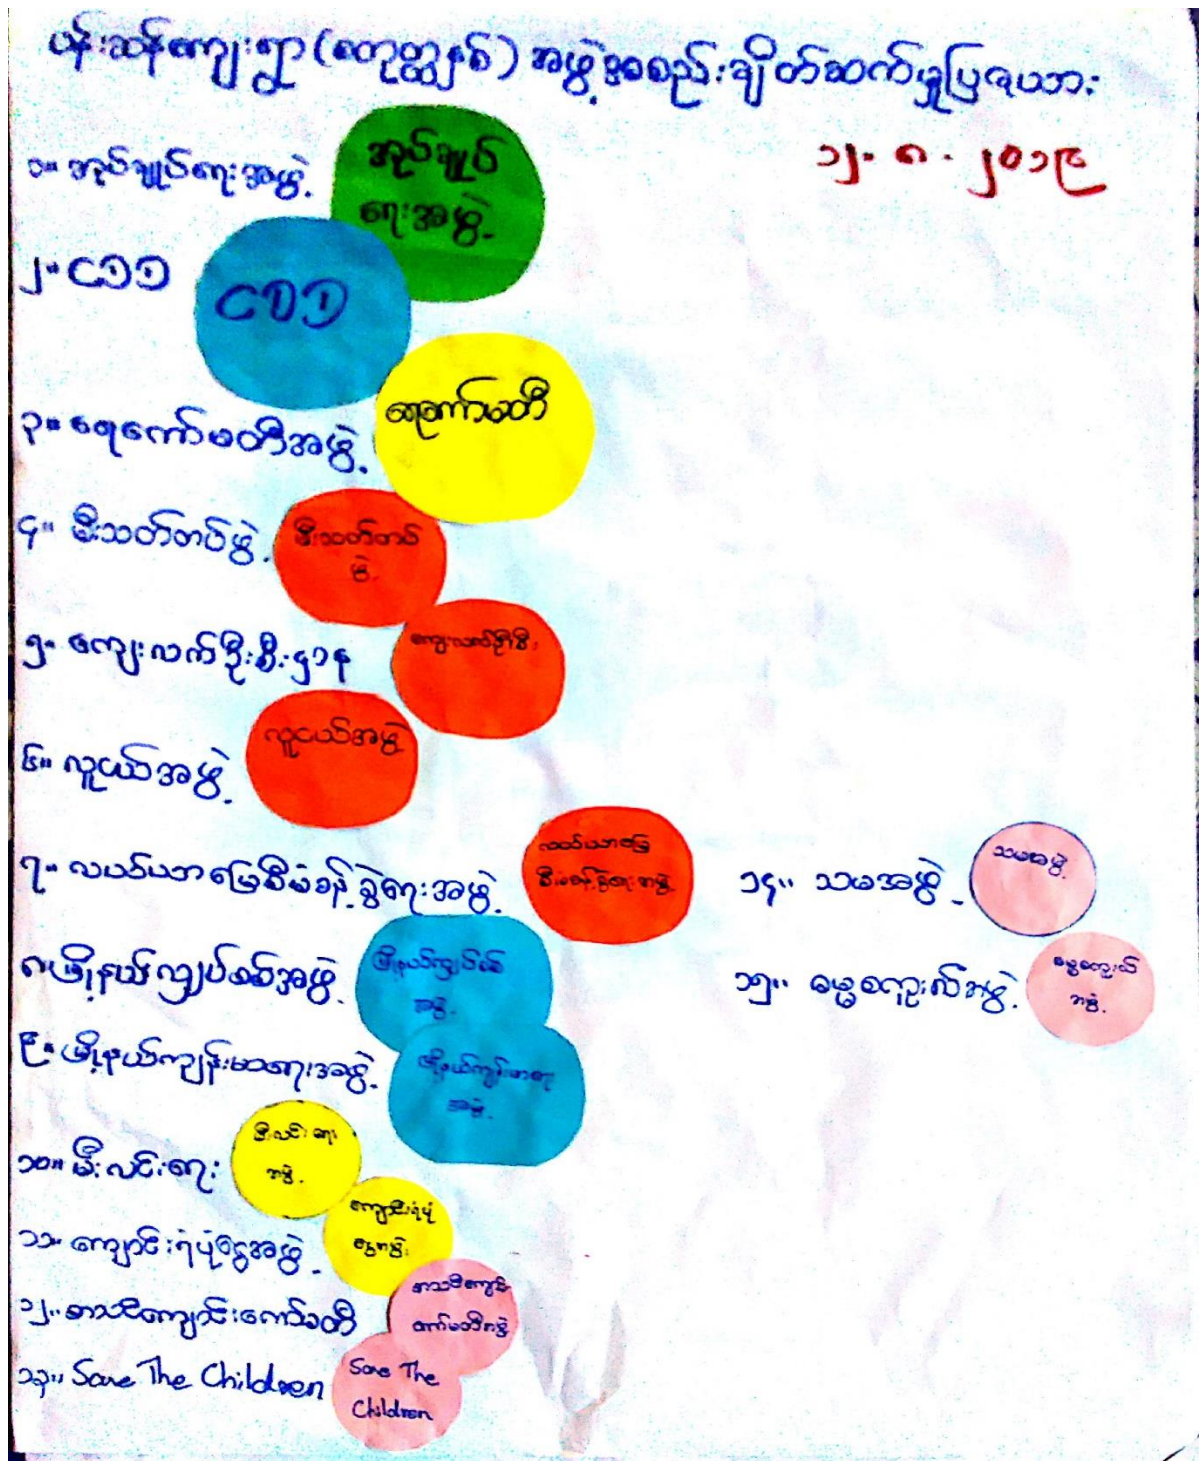 ပန်းဆန်ကျေးရွာ (စေတုတ္ထနှစ်) အဖွဲ့အစည်းချိတ်ဆက်မှုပြဇယား
၁၂. ၈. ၂၀၁၉
၁။ အုပ်ချုပ်ရေးအဖွဲ့
အုပ်ချုပ်
ရေးအဖွဲ့
၂။ ငဒဒ
ငဒဒ
၃။ ရေကော်မတီအဖွဲ့
ရေကော်မတီ
၄။ မီးသတ်တပ်ဖွဲ့
မီးသတ်တပ်
ဖွဲ့
၅။ ကျေးလက်ဦးစီးဌာန
ကျေးလက်ဦးစီး
၆။ လူငယ်အဖွဲ့
လူငယ်အဖွဲ့
၇။ လယ်ယာမြေစီမံခန့်ခွဲရေးအဖွဲ့
လယ်ယာမြေ
စီမံခန့်ခွဲရေးအဖွဲ့
၈။ မြို့နယ်လျှပ်စစ်အဖွဲ့
မြို့နယ်လျှပ်စစ်
အဖွဲ့
၉။ မြို့နယ်ကျန်းမာရေးအဖွဲ့
မြို့နယ်ကျန်းမာရေး
အဖွဲ့
၁၀။ မီးလင်းရေး
မီးလင်းရေး
အဖွဲ့
၁၁။ ကျောင်းရံပုံငွေအဖွဲ့
ကျောင်းရံပုံ
ငွေအဖွဲ့
၁၂။ စာသင်ကျောင်းကော်မတီ
စာသင်ကျောင်း
ကော်မတီအဖွဲ့
၁၃။ Save The Children
Save The
Children
၁၄။ သမအဖွဲ့
သမအဖွဲ့
၁၅။ ဓမ္မစကူးလ်အဖွဲ့
ဓမ္မစကူးလ်
အဖွဲ့